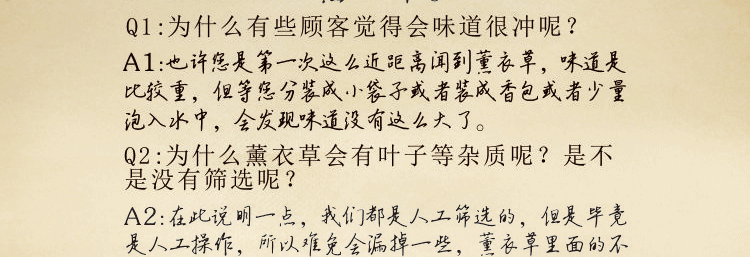 Q1:为什么有些顾客觉得会味道很冲呢？
A1:也许您是第一次这么近距离闻到薰衣草，味道是
比较重，但等您分装成小袋子或者装成香包或者少量
泡入水中，会发现味道没有这么大了。
Q2:为什么薰衣草会有叶子等杂质呢？是不
是没有筛选呢？
A2:在此说明一点，我们都是人工筛选的，但是毕竟
是人工操作，所以难免会漏掉一些，薰衣草里面的不